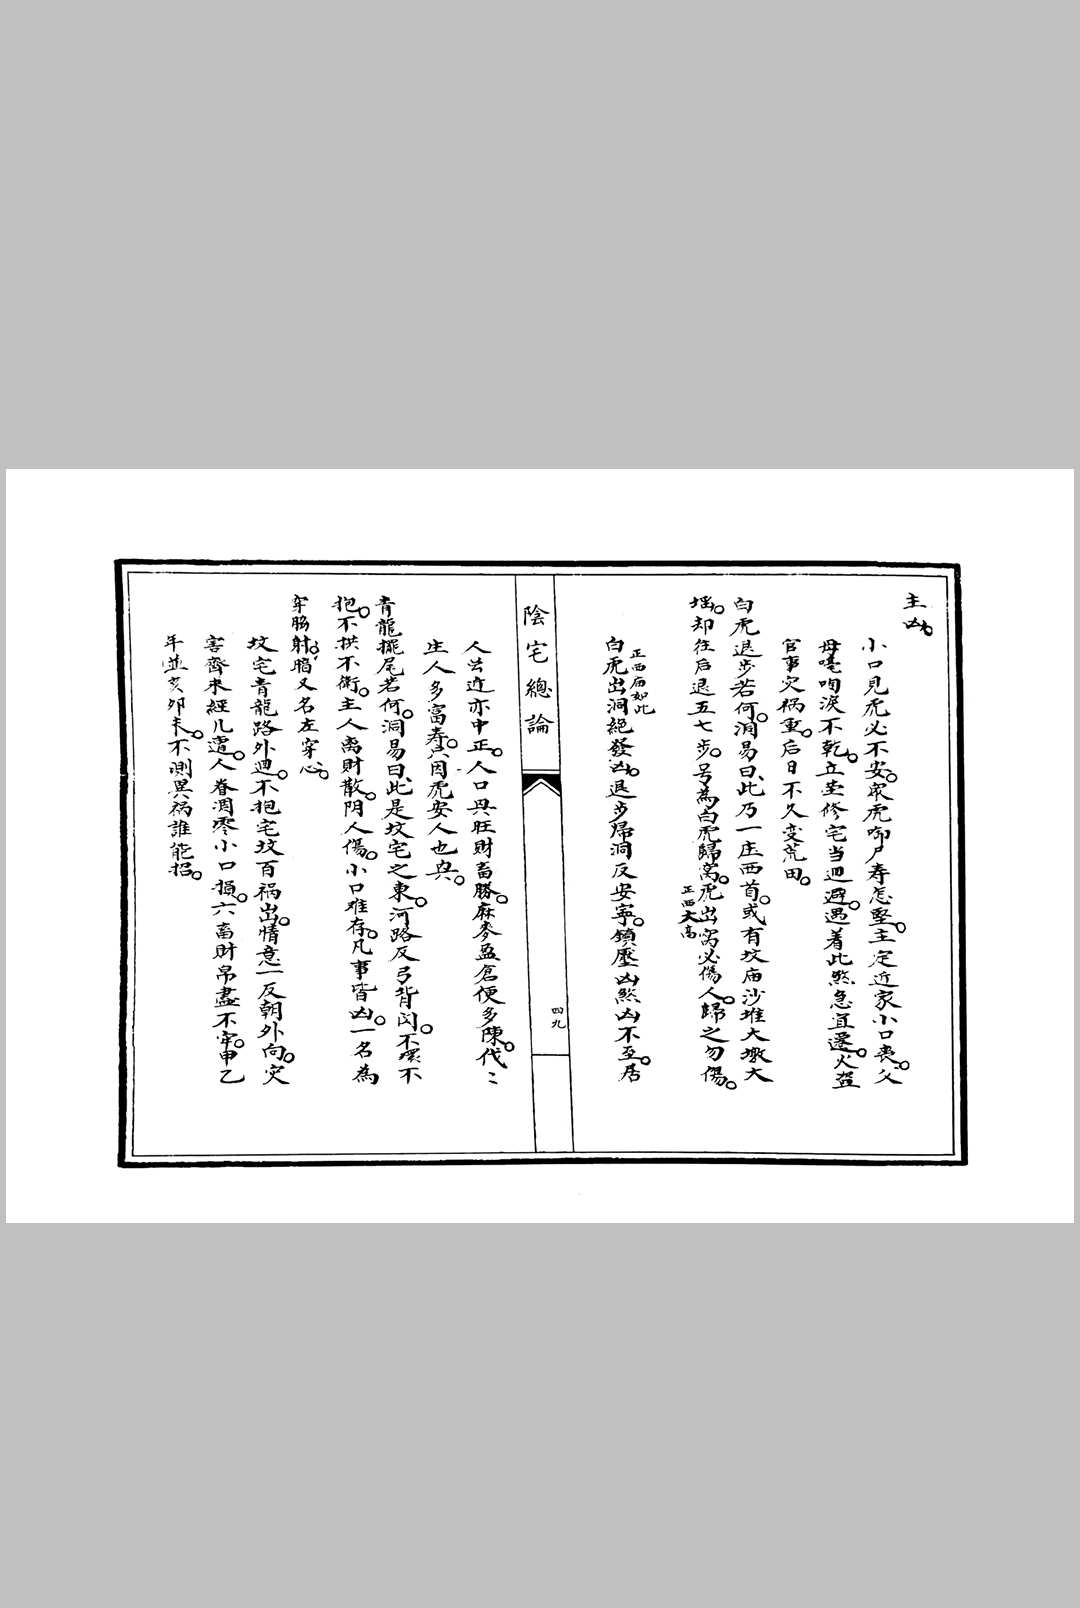 主凶。
小口見虎必不安。眾虎啣尸寿怎堅。主定近家小口喪。父
母嚎啕淚不乾。立塋修宅当迴避。遇着此煞急宜遷。火盜
官事灾祸重。后日不久变荒田。
白虎退步若何。洞易曰、此乃一庄西首。或有坟庙沙堆大墩大
塸。却往后退五七步。号為白虎歸窩。虎出窩必傷人。歸之勿傷。
正西大高
正西庙如此
白虎出洞絕發凶。退步歸洞反安寧。鎮壓凶煞凶不至。居
陰宅總論
四九
人公道亦中正。人口興旺財畜勝。麻麥盈倉便多陳。代〻
生人多富壽。只因虎安人也興。
青龍擺尾若何。洞易曰、此是坟宅之東。河路反弓背凶。不環不
抱。不拱不衛。主人离財散。阴人傷。小口难存。凡事皆凶。一名為
穿胁射腸。又名左穿心。
坟宅青龍路外迴。不抱宅坟百祸出。情意一反朝外向。灾
害齊来經几遭。人眷凋零小口損。六畜財帛盡不牢。甲乙
年並亥卯未。不測異祸誰能招。